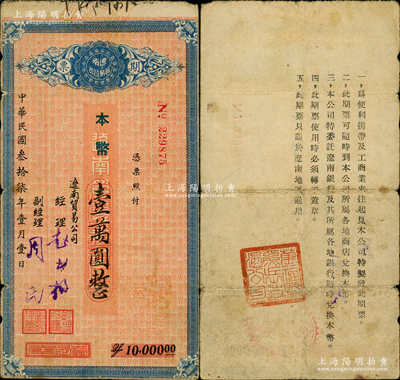 上海陽明拍賣
www.yangmingauction.com
期
票
№ 229875
憑票照付
本幣
壹萬圓整
遼南貿易公司
經理
副經理
中華民國叁拾柒年壹月壹日
$ 10.00000
上海陽明拍賣
www.yangmingauction.com
一，為便利携帶及工商業來往起見本公司特製發此期票。
二，此期票可隨時到本公司所屬各地商店兌換本幣。
三，本公司特委託遼南銀行及其所屬各地銀行隨時兌換本幣。
四，此期票使用時必須轉
五，此期票只限於遼南地